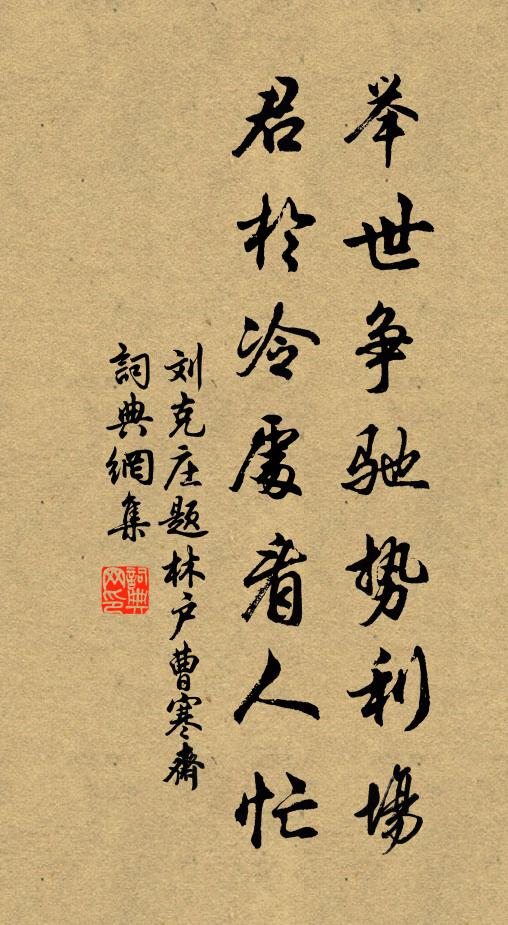 举世争驰势利場
君於冷處看人忙
刘克庄题林户曹寒齋
詞典網集
詞典网印